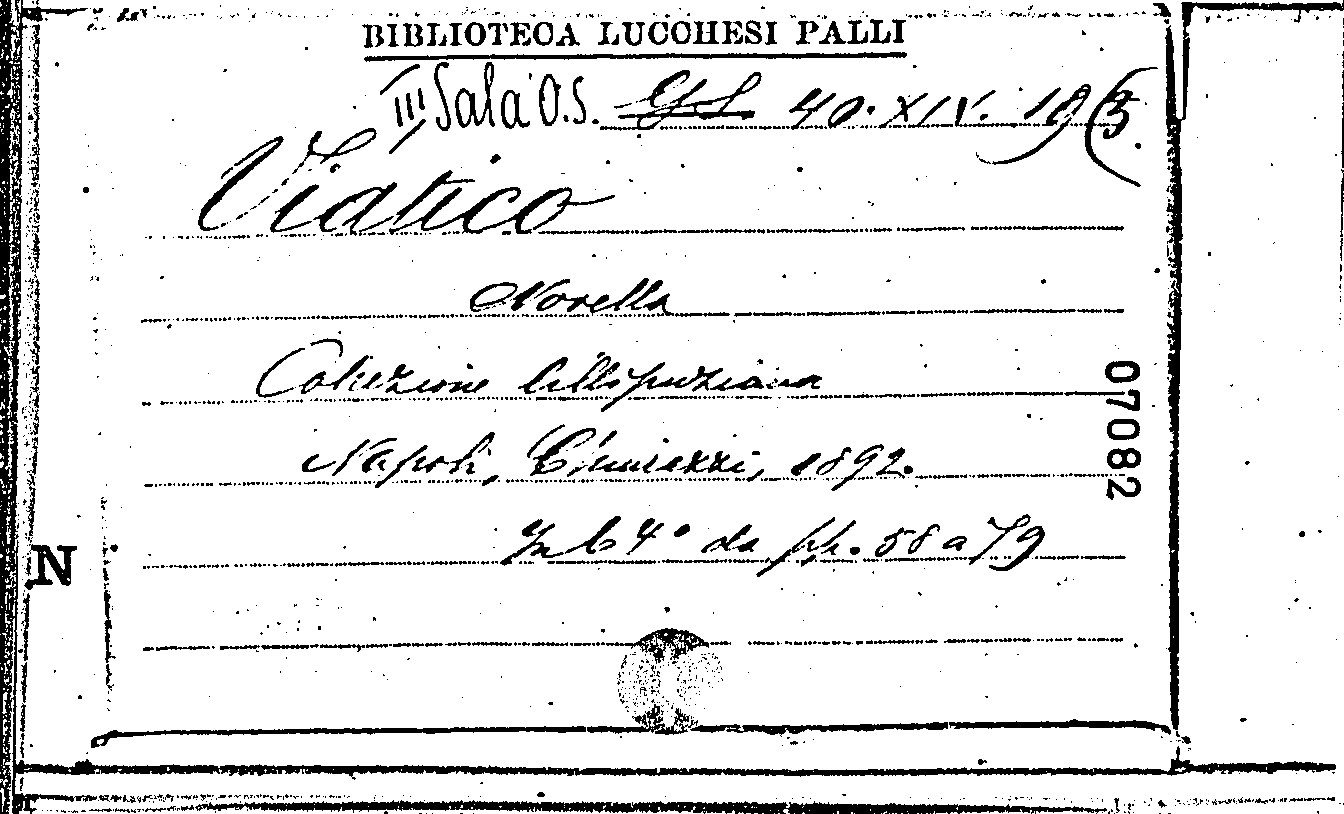 BIBLIOTECA LUCCHESI PALLI
III Sala O.S. 40. XIV. 19(3.
Viatico
Novella
Collezione lillipuziana
Napoli, Chiurazzi, 1892.
07082
In 64° da pp. 58 a 79
N